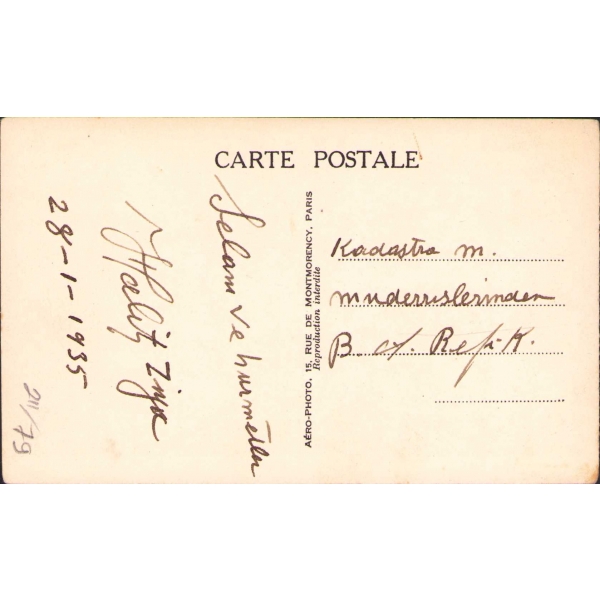 CARTE POSTALE
Selam ve hurmetler
Halit Ziya
28-1-1935
211/79
AÉRO-PHOTO, 15, RUE DE MONTMORENCY, PARIS
Reproduction interdite
Kadastro m.
muderrislerinden
B. Refi K.